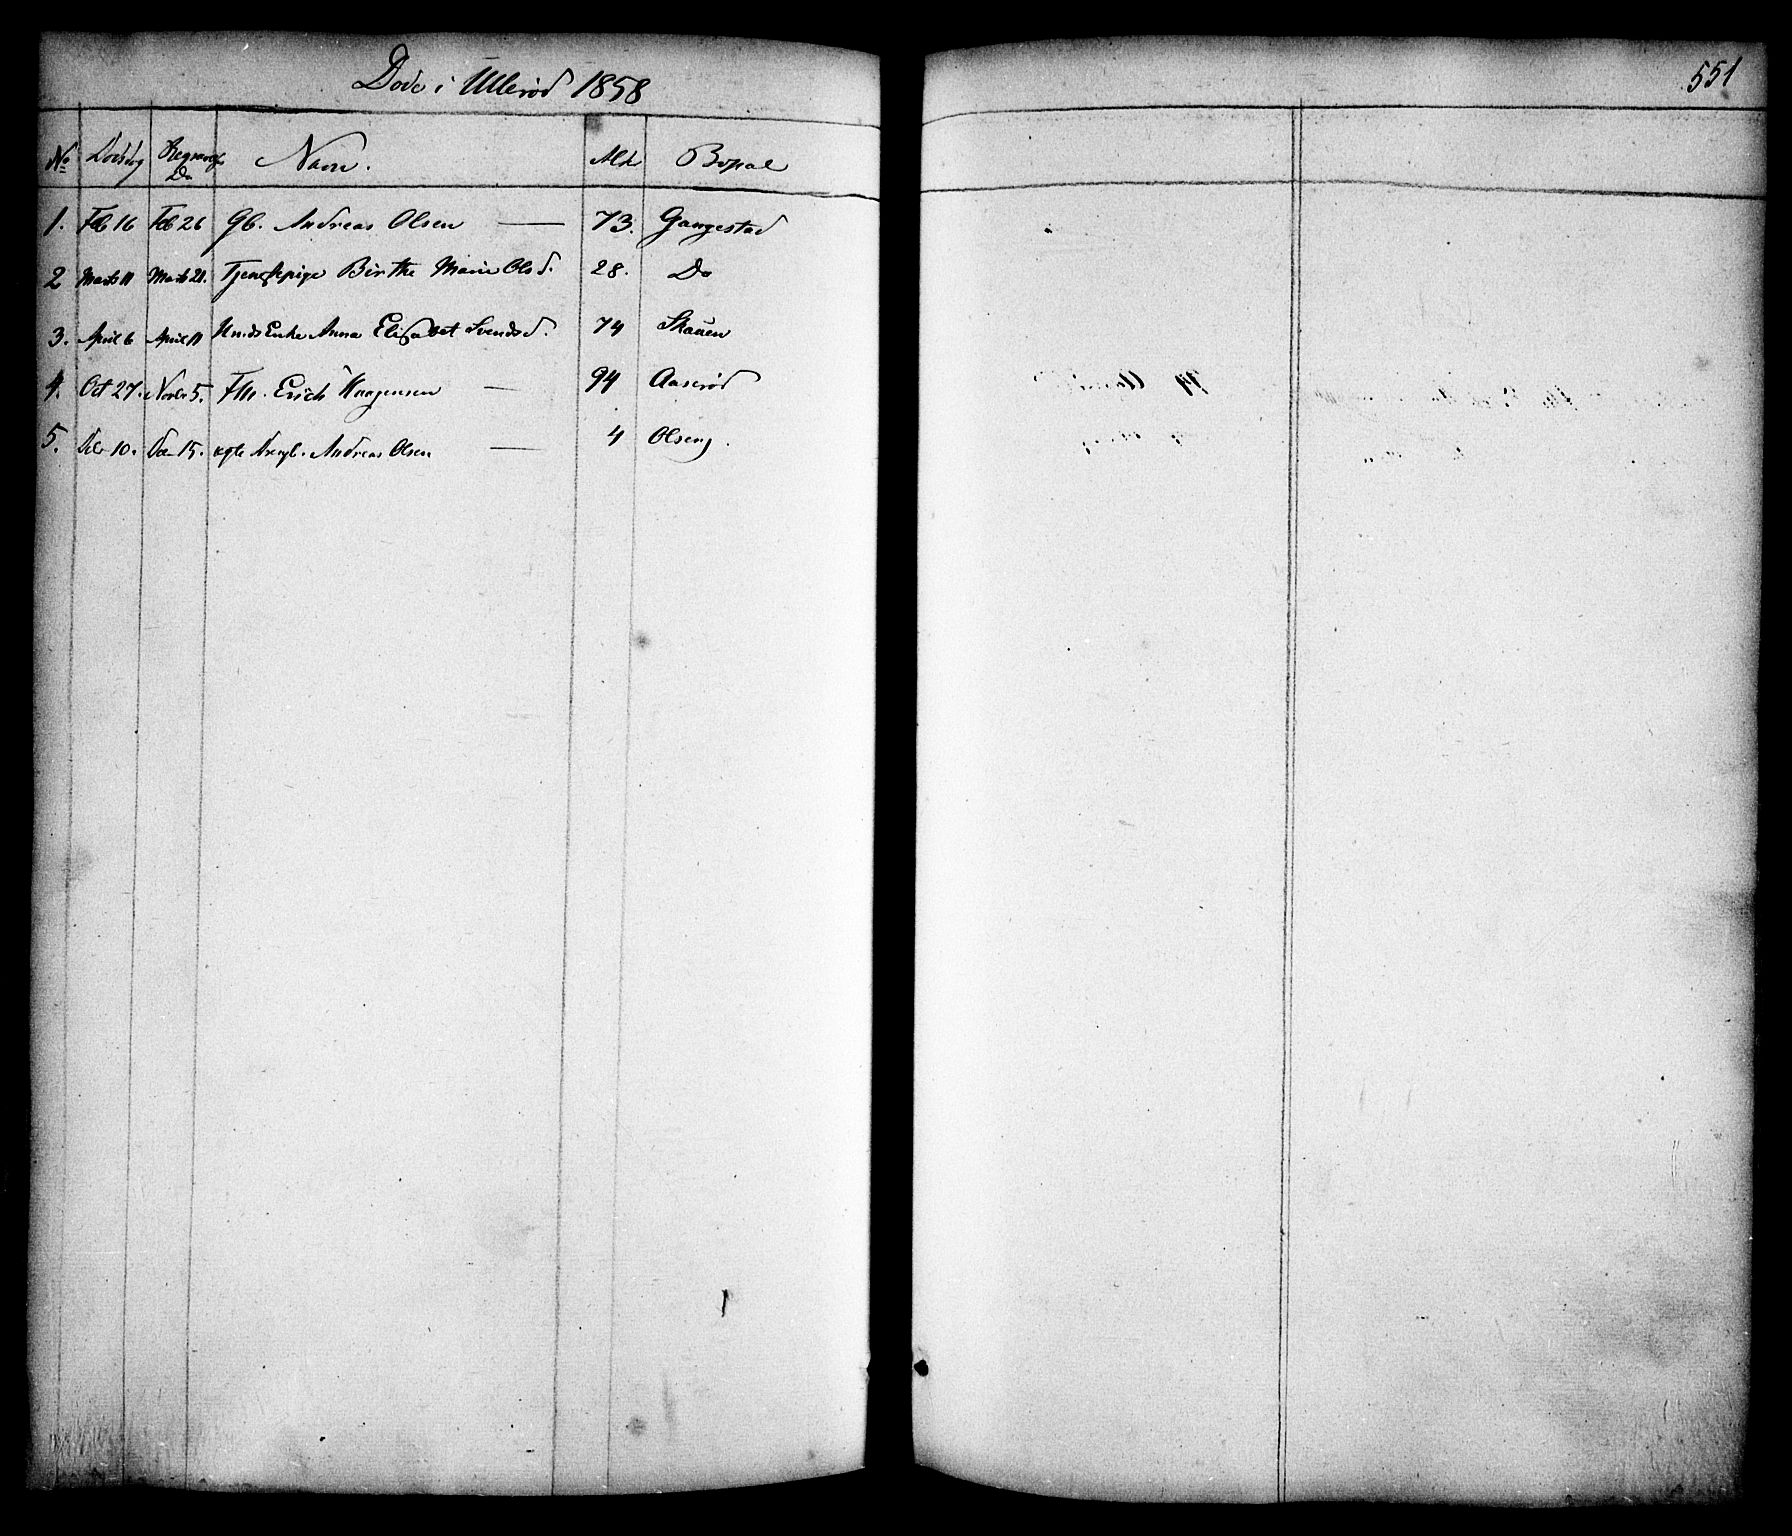 Døde i Ullerød 1858
551
No Dødsdag Begravels Da Navn. Alder Bopæl
1. Feb 16 Feb 26 Gb. Andreas Olsen — 73. Gangestad
2 Marts 11 Marts 21. Tjenestepige Birthe Marie Olsd. 28. Do
3. April 6 April 11 Huusds Enke Anna Elisabet Svendsd. 74 Skauen
4. Oct 27. Novbr 5. Fm. Erich Haagensen — 94 Aaserød
5. Dcbr 10. Dec 15. Andreas Olsen — 4 Olseng.